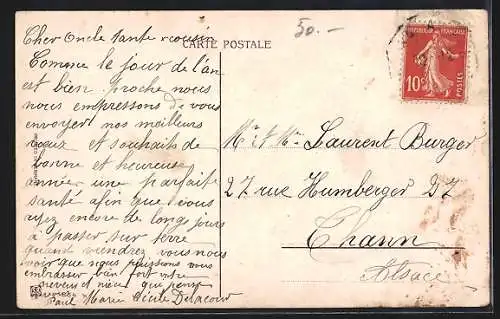 Cher Oncle tante cousin
CARTE POSTALE
50.-
Comme le jour de l'an
est bien proche nous
nous empressons de vous
envoyer nos meilleurs
vœux et souhaits de
bonne et heureuse
année une parfaite
santé afin que vous
ayez encore de longs jours
à passer sur terre
quand viendrez vous nous
voir que nous puissions vous
embrasser bien fort votre
neveu et nièce qui
Paul Marie Cécile Delacour
RÉPUBLIQUE FRANÇAISE
10c
POSTES
Mr et Mme Laurent Burger
27 rue Humberger 27
Thann
Alsace